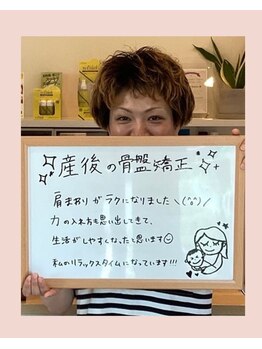 産後の骨盤矯正
肩まわりがラクになりました＼(^o^)／
力の入れ方も思い出してきて、
生活がしやすくなったと思います☺
私のリラックスタイムになっています!!!